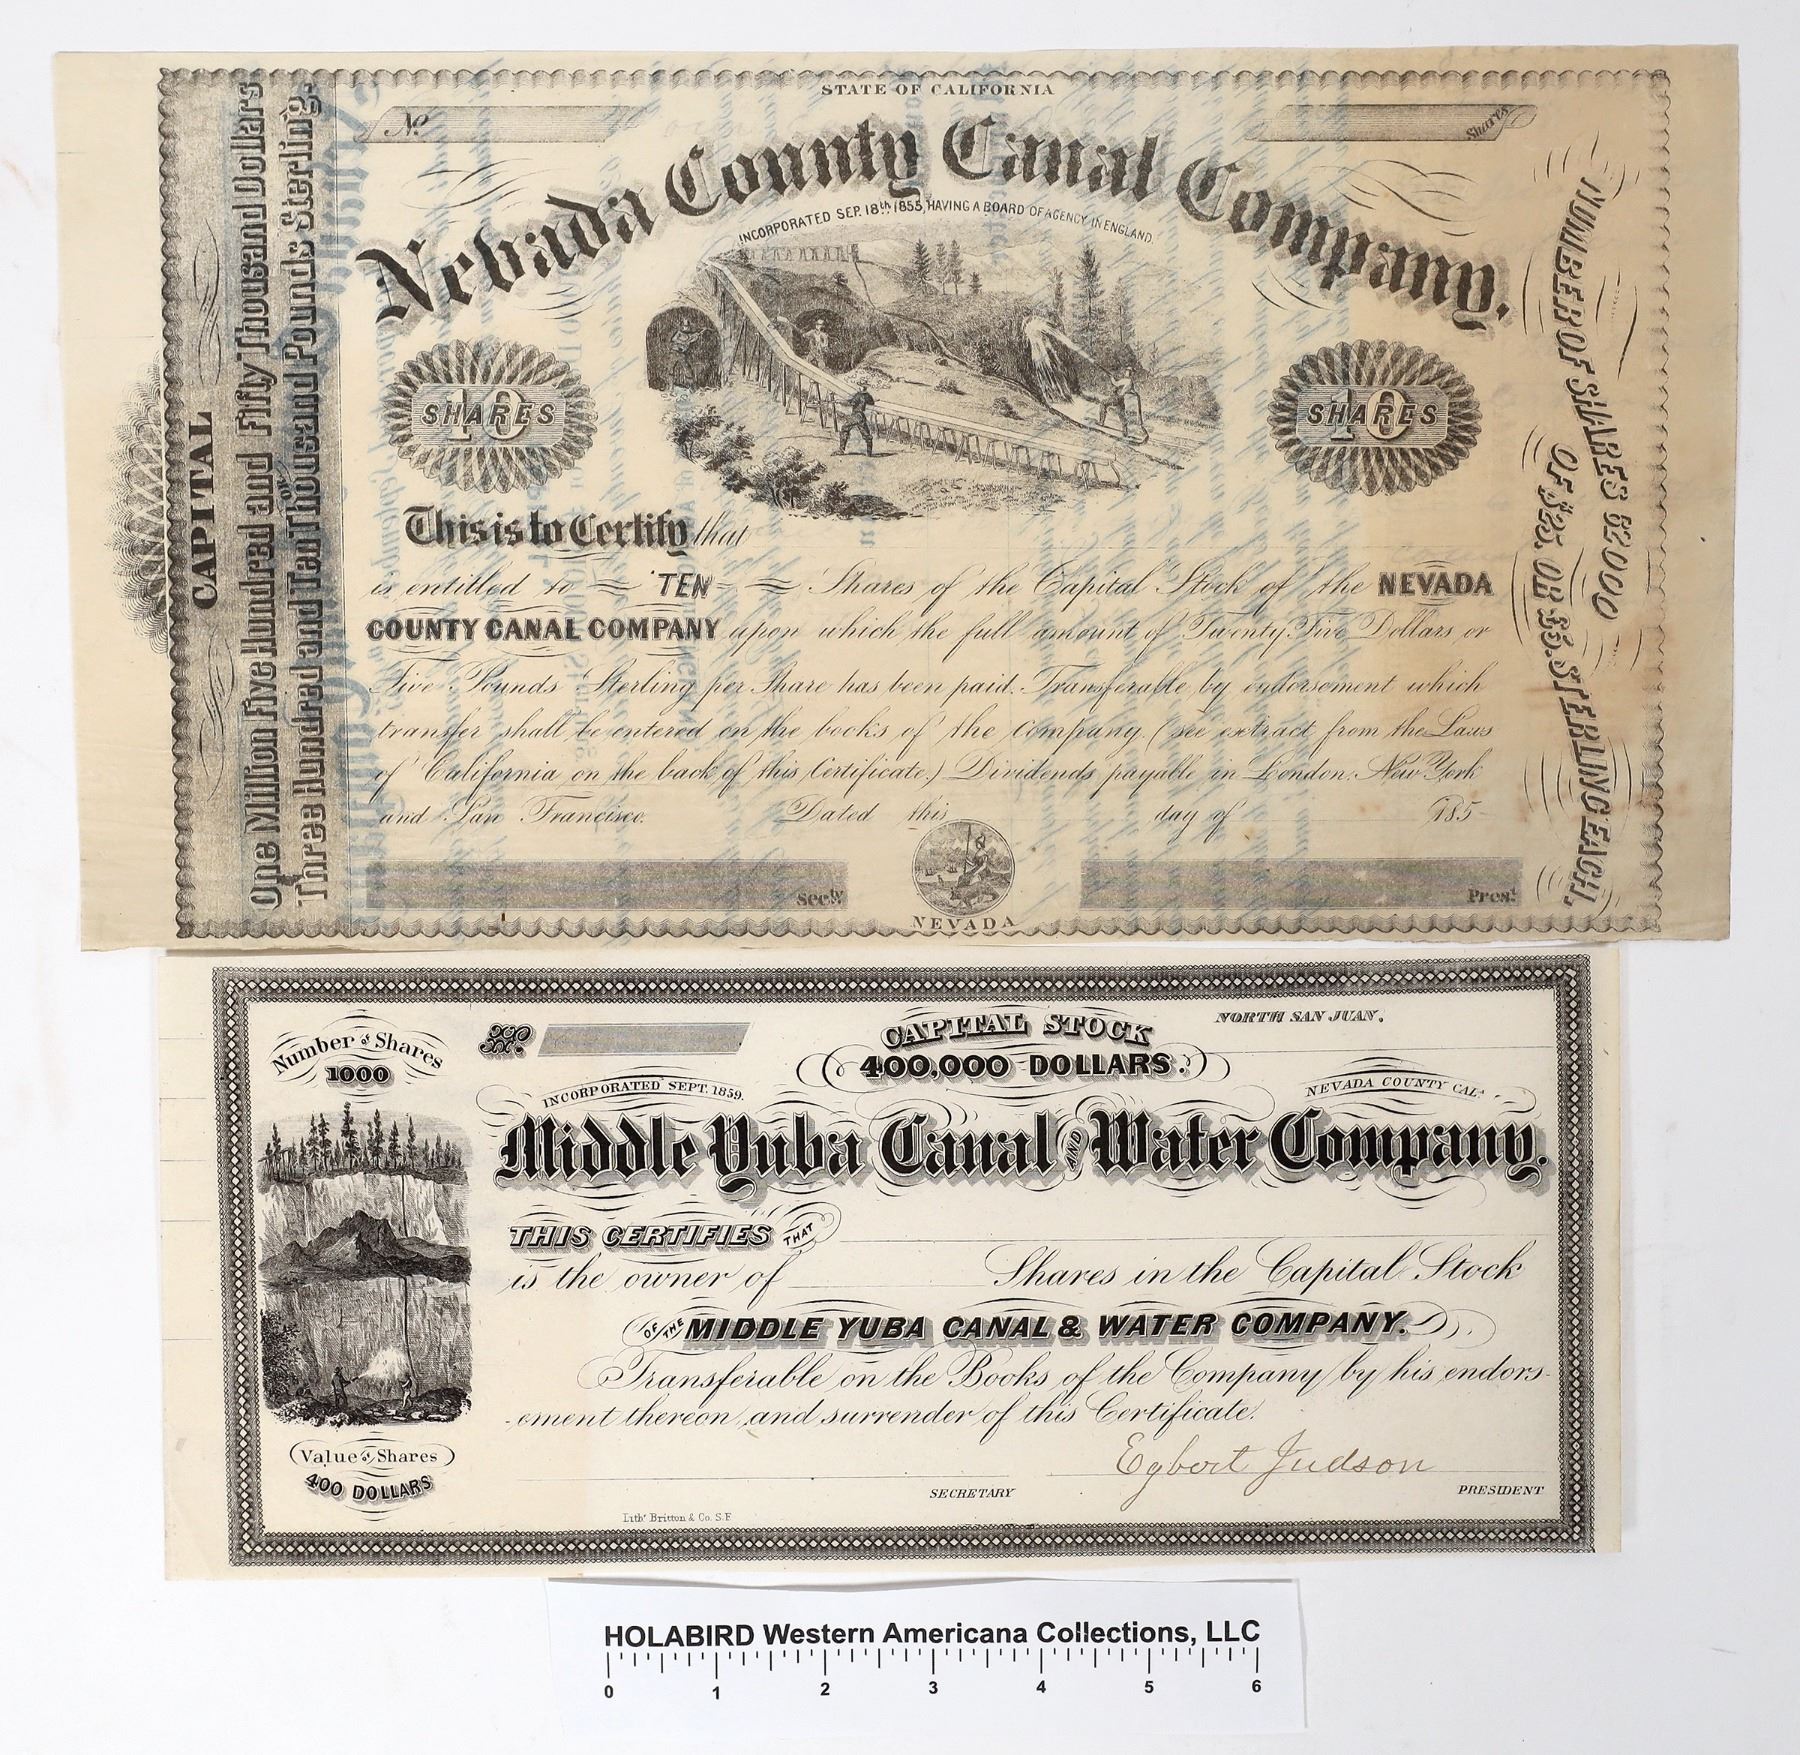 STATE OF CALIFORNIA
No.
Shares
Nevada County Canal Company.
INCORPORATED SEP. 18th 1855, HAVING A BOARD OF AGENCY IN ENGLAND.
CAPITAL
One Million Five Hundred and Fifty Thousand Dollars
OR
Three Hundred and Ten Thousand Pounds Sterling.
10 SHARES
10 SHARES
NUMBER OF SHARES 62000
OF $25. OR £5. STERLING EACH.
This is to Certify that
is entitled to = TEN = Shares of the Capital Stock of the NEVADA
COUNTY CANAL COMPANY upon which the full amount of Twenty Five Dollars or
Five Pounds Sterling per Share has been paid. Transferable by endorsement which
transfer shall be entered on the books of the Company. (see extract from the Laws
of California on the back of this Certificate.) Dividends payable in London. New York
and San Francisco. Dated this day of 185
Secty
Prest
NEVADA
Number of Shares
1000
No.
CAPITAL STOCK
400,000 DOLLARS.
NORTH SAN JUAN.
INCORPORATED SEPT. 1859.
NEVADA COUNTY CAL.
Middle Yuba Canal AND Water Company.
THIS CERTIFIES THAT
is the owner of Shares in the Capital Stock
OF THE MIDDLE YUBA CANAL & WATER COMPANY.
Transferable on the Books of the Company by his endors-
-ement thereon and surrender of this Certificate.
Value of Shares
400 DOLLARS
Egbert Judson
SECRETARY
PRESIDENT
Lith. Britton & Co. S.F
HOLABIRD Western Americana Collections, LLC
0 1 2 3 4 5 6